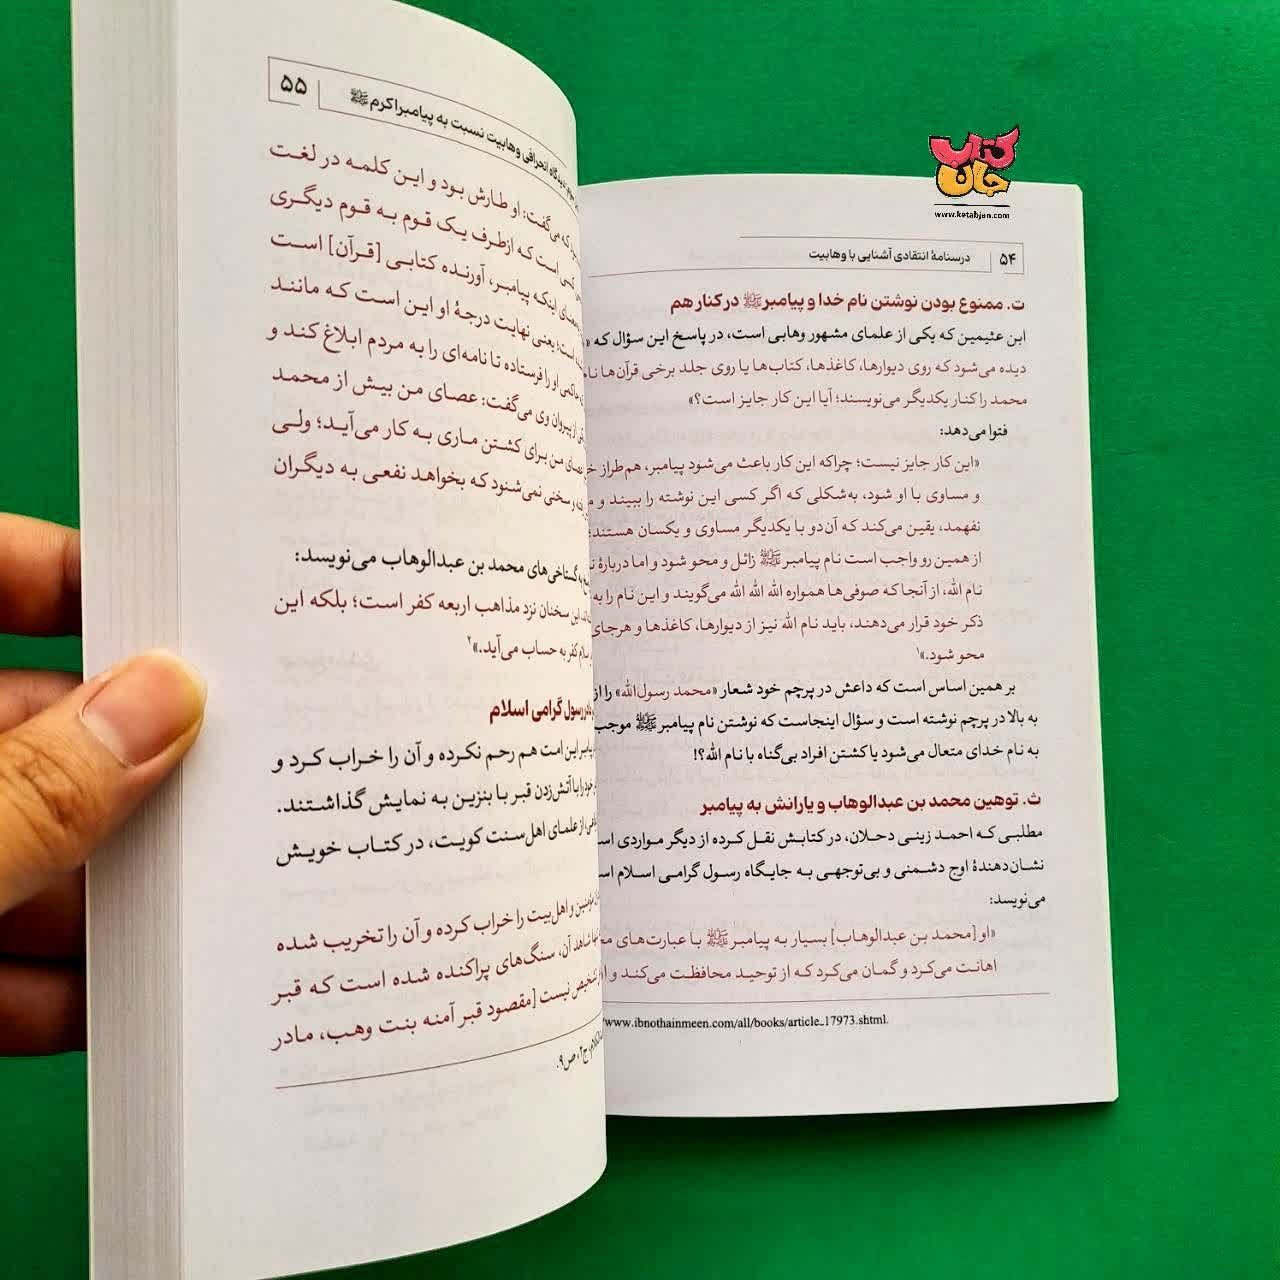 کتاب
جان
www.ketabjan.com
۵۴ درسنامهٔ انتقادی آشنایی با وهابیت
ت. ممنوع بودن نوشتن نام خدا و پیامبرﷺ در کنار هم
ابن عثیمین که یکی از علمای مشهور وهابی است، در پاسخ این سؤال که «
دیده می‌شود که روی دیوارها، کاغذها، کتاب‌ها یا روی جلد برخی قرآن‌ها
محمد را کنار یکدیگر می‌نویسند؛ آیا این کار جایز است؟»
فتوا می‌دهد:
«این کار جایز نیست؛ چراکه این کار باعث می‌شود پیامبر، هم‌طراز
و مساوی با او شود، به‌شکلی که اگر کسی این نوشته را ببیند و
نفهمد، یقین می‌کند که آن‌دو با یکدیگر مساوی و یکسان هستند؛
از همین رو واجب است نام پیامبرﷺ زائل و محو شود و اما دربارهٔ
نام الله، از آنجا که صوفی‌ها همواره الله الله الله می‌گویند و این نام را به
ذکر خود قرار می‌دهند، باید نام الله نیز از دیوارها، کاغذها و هرجای
محو شود.»۱
بر همین اساس است که داعش در پرچم خود شعار «محمد رسول‌الله» را از
به بالا در پرچم نوشته است و سؤال اینجاست که نوشتن نام پیامبرﷺ موجب
به نام خدای متعال می‌شود یا کشتن افراد بی‌گناه با نام الله؟!
ث. توهین محمد بن عبدالوهاب و یارانش به پیامبر
مطلبی که احمد زینی دحلان، در کتابش نقل کرده از دیگر مواردی
نشان‌دهندهٔ اوج دشمنی و بی‌توجهی به جایگاه رسول گرامی اسلام
می‌نویسد:
«او [محمد بن عبدالوهاب] بسیار به پیامبرﷺ با عبارت‌های
اهانت می‌کرد و گمان می‌کرد که از توحید محافظت می‌کند و
www.ibnothainmeen.com/all/books/article_17973.shtml.
دیدگاه انحرافی وهابیت نسبت به پیامبر اکرمﷺ ۵۵
که می‌گفت: او طارش بود و این کلمه در لغت
کسی است که ازطرف یک قوم به قوم دیگری
اینکه پیامبر، آورنده کتابی [قرآن] است
است؛ یعنی نهایت درجهٔ او این است که مانند
حاکمی او را فرستاده تا نامه‌ای را به مردم ابلاغ کند و
از پیروان وی می‌گفت: عصای من بیش از محمد
من برای کشتن ماری به کار می‌آید؛ ولی
و سخنی نمی‌شنود که بخواهد نفعی به دیگران
گستاخی‌های محمد بن عبدالوهاب می‌نویسد:
این سخنان نزد مذاهب اربعه کفر است؛ بلکه این
کفر به حساب می‌آید.»۲
رسول گرامی اسلام
پیامبر این امت هم رحم نکرده و آن را خراب کرد و
خود را با آتش‌زدن قبر با بنزین به نمایش گذاشتند.
از علمای اهل‌سنت کویت، در کتاب خویش
و اهل‌بیت را خراب کرده و آن را تخریب شده
شاهد آن، سنگ‌های پراکنده شده است که قبر
تشخیص نیست [مقصود قبر آمنه بنت وهب، مادر
ج۲، ص۹.